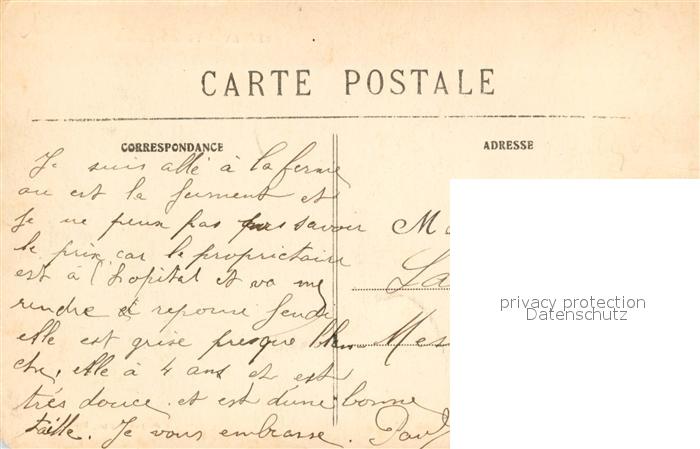 CARTE POSTALE
CORRESPONDANCE
ADRESSE
Je suis allé à la ferme
ou est la jument et
je ne peux pas savoir
le prix car le proprietaire
est à l'hopital et va me
rendre reponse Jeudi
elle est grise presque blan
che, elle à 4 ans et est
trés douce et est d'une bonne
taille. Je vous embrasse. Paul
M
La
Mes
privacy protection
Datenschutz